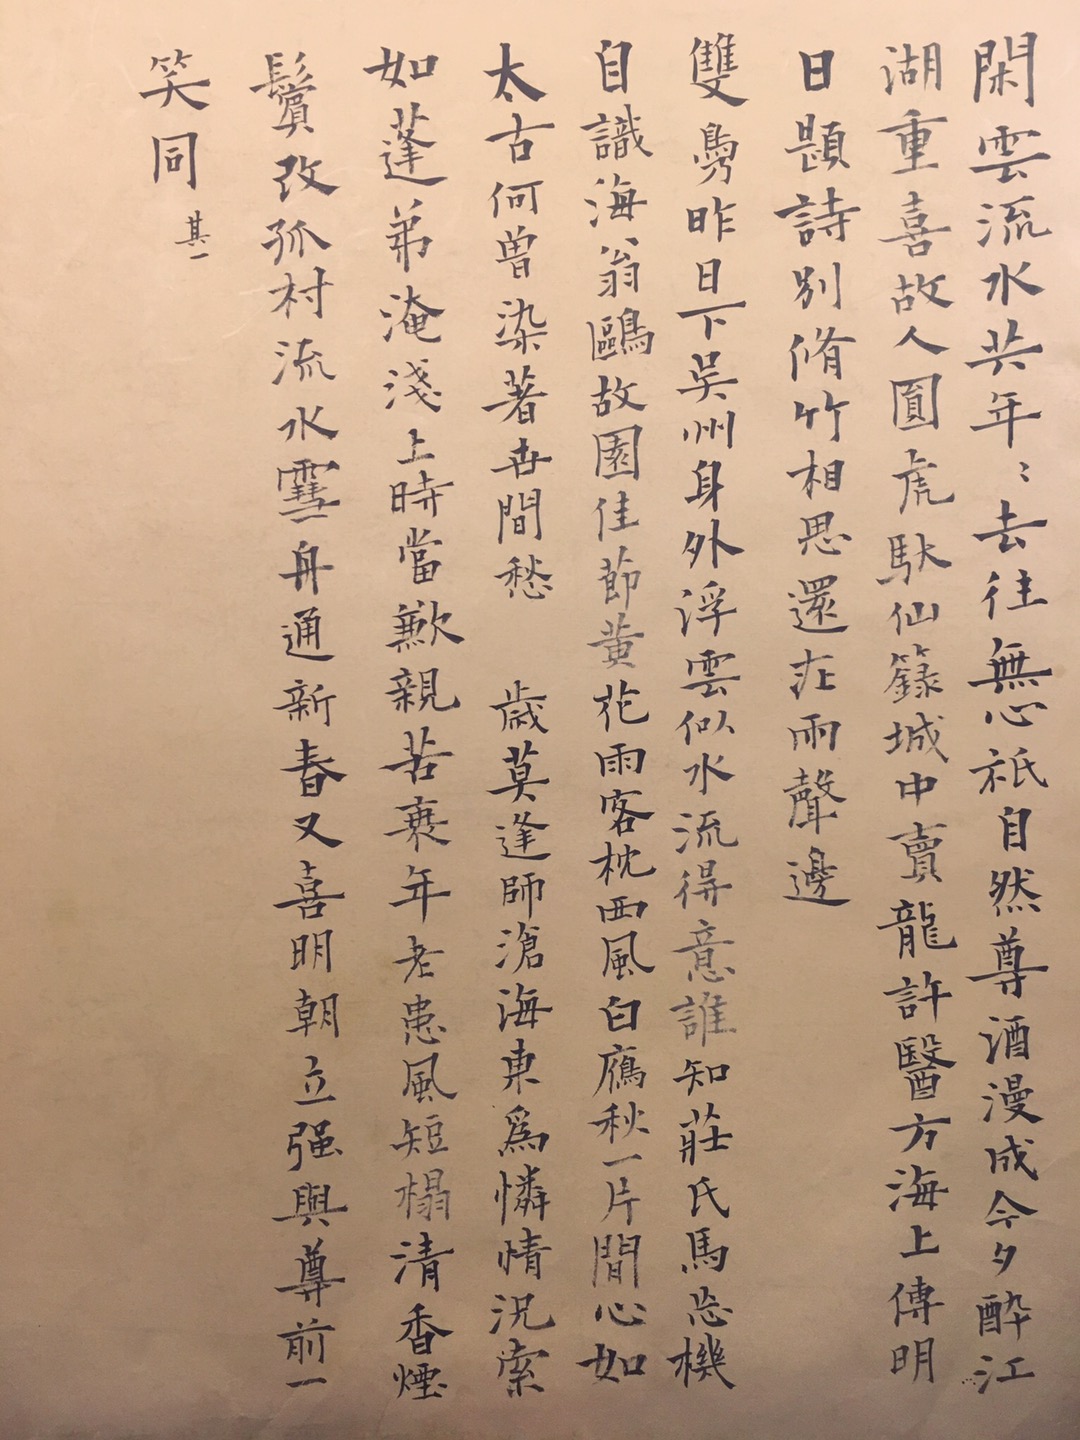 閑雲流水共年〻去往無心祇自然尊酒漫成今夕醉江
湖重喜故人圓虎馱仙籙城中賣龍許醫方海上傳明
日題詩別脩竹相思還在雨聲邊
雙鳧昨日下吳州身外浮雲似水流得意誰知莊氏馬忘機
自識海翁鷗故園佳節黃花雨客枕西風白鴈秋一片間心如
太古何曾染著世間愁 歲莫逢師滄海東為憐情況索
如蓬弟淹淺上時當歉親苦衰年老患風短榻清香煙
鬢改孤村流水雪舟通新春又喜明朝立强與尊前一
笑同 其一